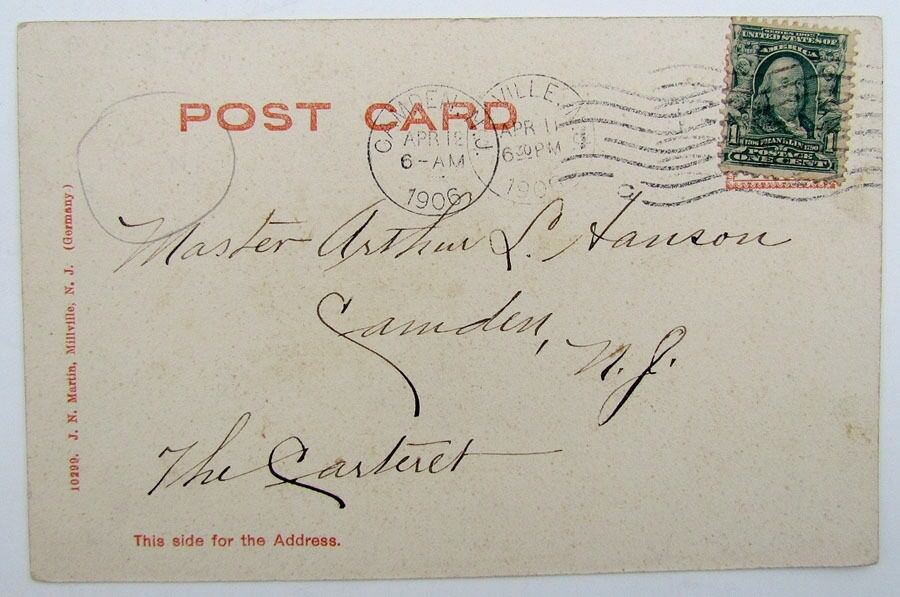 POST CARD
CAMDEN
APR 12
6-AM
1906
VILLE.
APR 11
630PM
SERIES 1902
UNITED STATES OF
AMERICA
FRANKLIN
POSTAGE
1 ONE CENT 1
Master Arthur L. Hanson
Camden, N. J.
The Carteret
This side for the Address.
10299. J. N. Martin, Millville, N. J. (Germany)